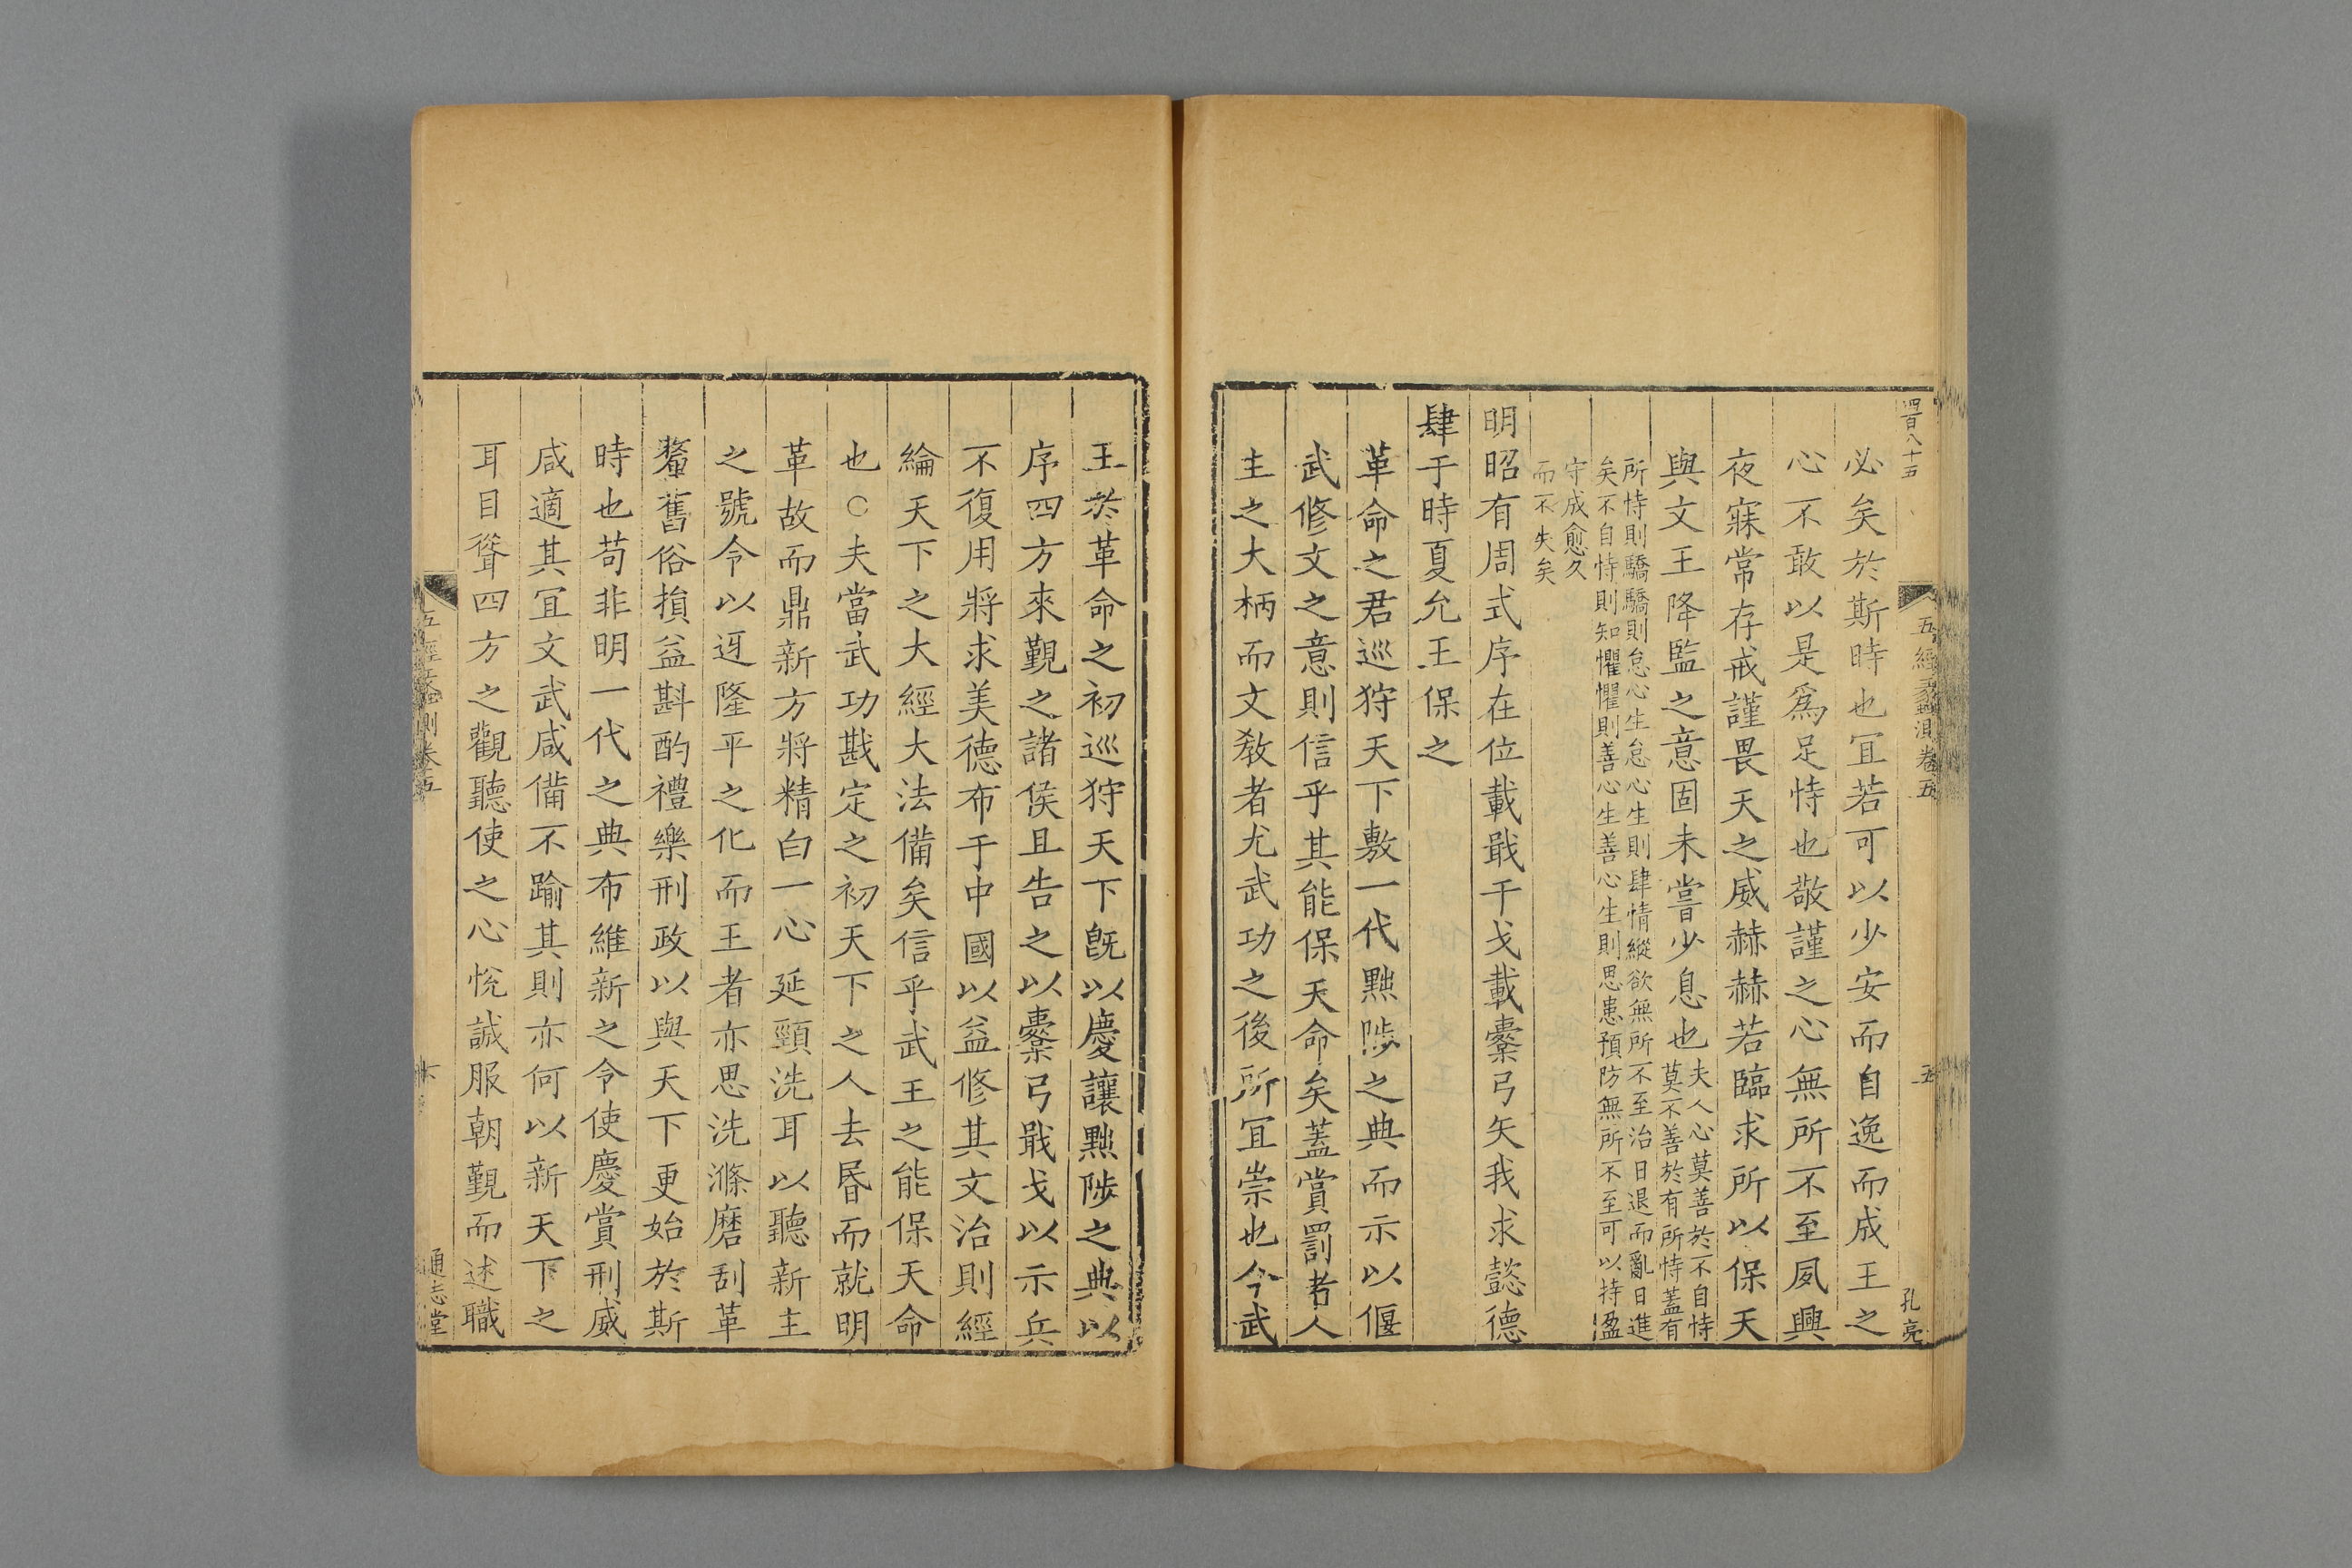 四百八十五
五經蠡測卷五
五
孔亮
必矣於斯時也冝若可以少安而自逸而成王之
心不敢以是爲足恃也敬謹之心無所不至夙興
夜寐常存戒謹畏天之威赫赫若臨求所以保天
與文王降監之意固未嘗少息也夫人心莫善於不自恃
莫不善於有所恃蓋有
所恃則驕驕則怠心生怠心生則肆情縱欲無所不至治日退而亂日進
矣不自恃則知懼懼則善心生善心生則思患預防無所不至可以持盈
守成愈久
而不失矣
明昭有周式序在位載戢干戈載櫜弓矢我求懿德
肆于時夏允王保之
革命之君巡狩天下敷一代黜陟之典而示以偃
武修文之意則信乎其能保天命矣蓋賞罰者人
主之大柄而文敎者尤武功之後所冝崇也今武
王於革命之初巡狩天下旣以慶讓黜陟之典以
序四方來覲之諸侯且告之以櫜弓戢戈以示兵
不復用將求美德布于中國以益修其文治則經
綸天下之大經大法備矣信乎武王之能保天命
也○夫當武功戡定之初天下之人去昬而就明
革故而鼎新方將精白一心延頸洗耳以聽新主
之號令以迓隆平之化而王者亦思洗滌磨刮革
釐舊俗損益斟酌禮樂刑政以與天下更始於斯
時也苟非明一代之典布維新之令使慶賞刑威
咸適其冝文武咸備不踰其則亦何以新天下之
耳目聳四方之觀聽使之心悅誠服朝覲而述職
五經蠡測卷五
六
通志堂